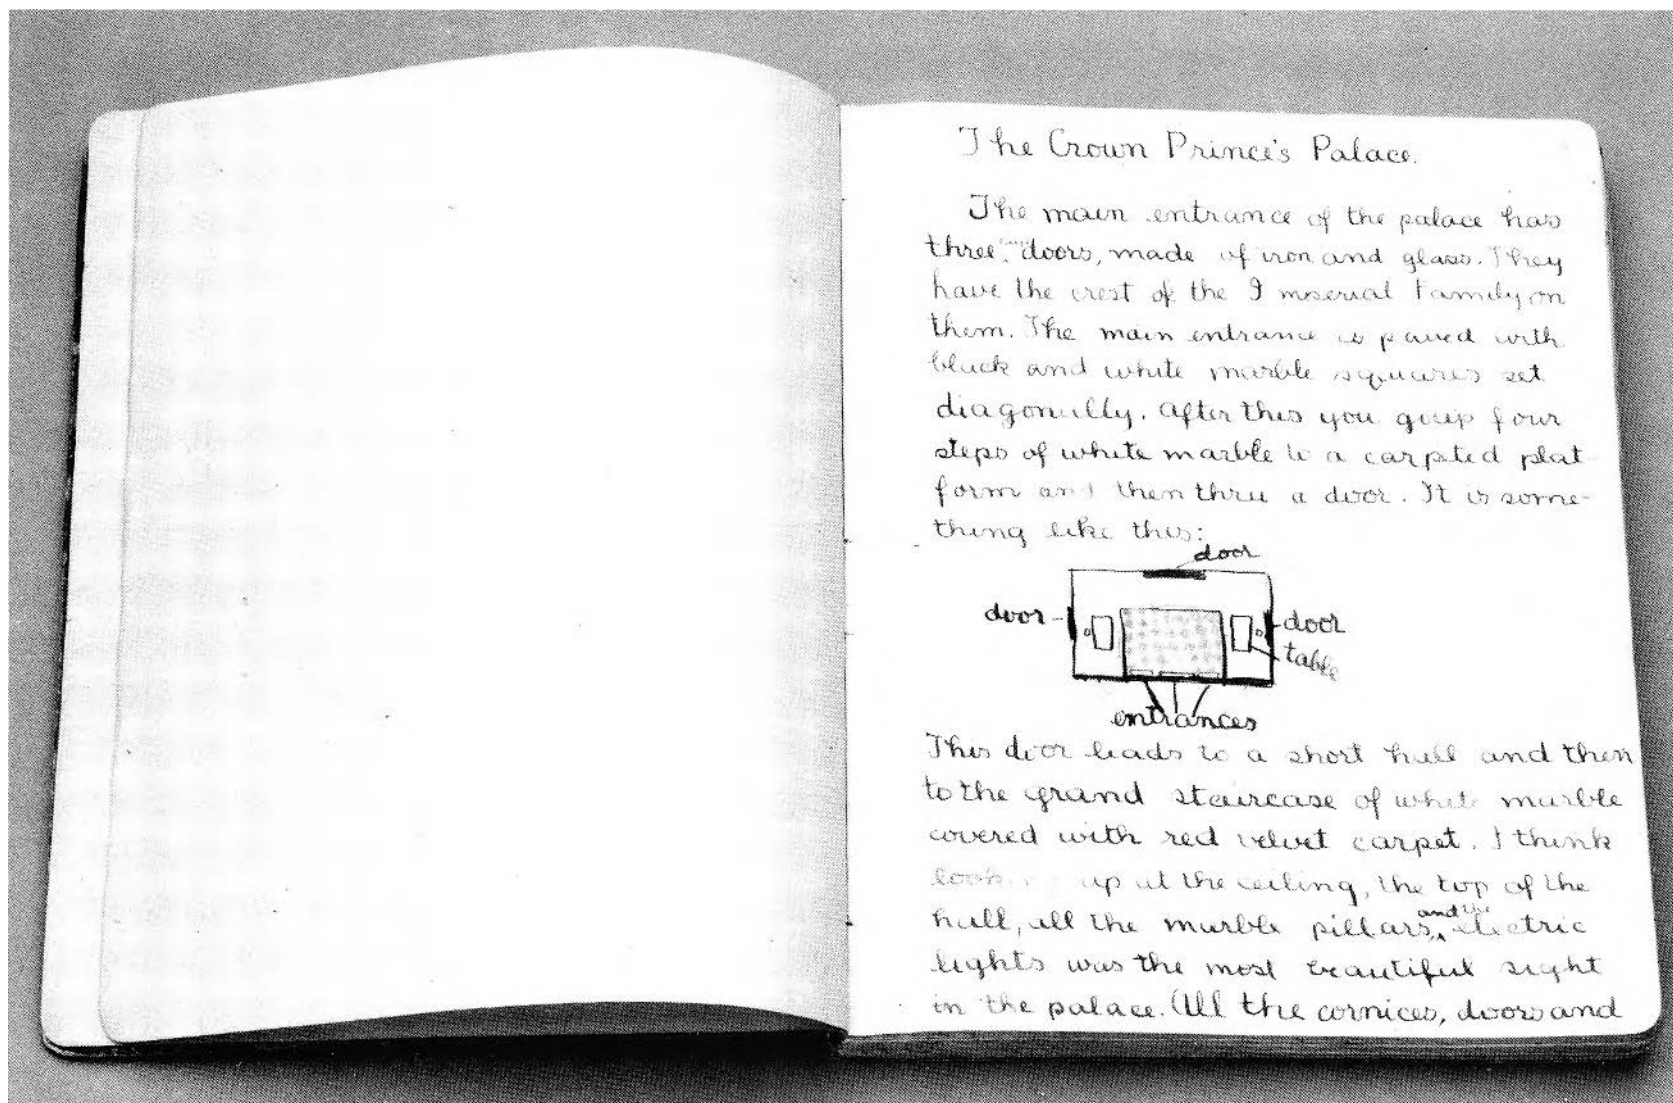 The Crown Prince's Palace.
The main entrance of the palace has
three doors, made of iron and glass. They
have the crest of the Imperial Family on
them. The main entrance is paved with
black and white marble squares set
diagonally. After this you go up four
steps of white marble to a carpted plat
form and then thru a door. It is some-
thing like this:
door
door
door
table
entrances
This door leads to a short hall and then
to the grand staircase of white marble
covered with red velvet carpet. I think
looking up at the ceiling, the top of the
hall, all the marble pillars, and the electric
lights was the most beautiful sight
in the palace. All the cornices, doors and